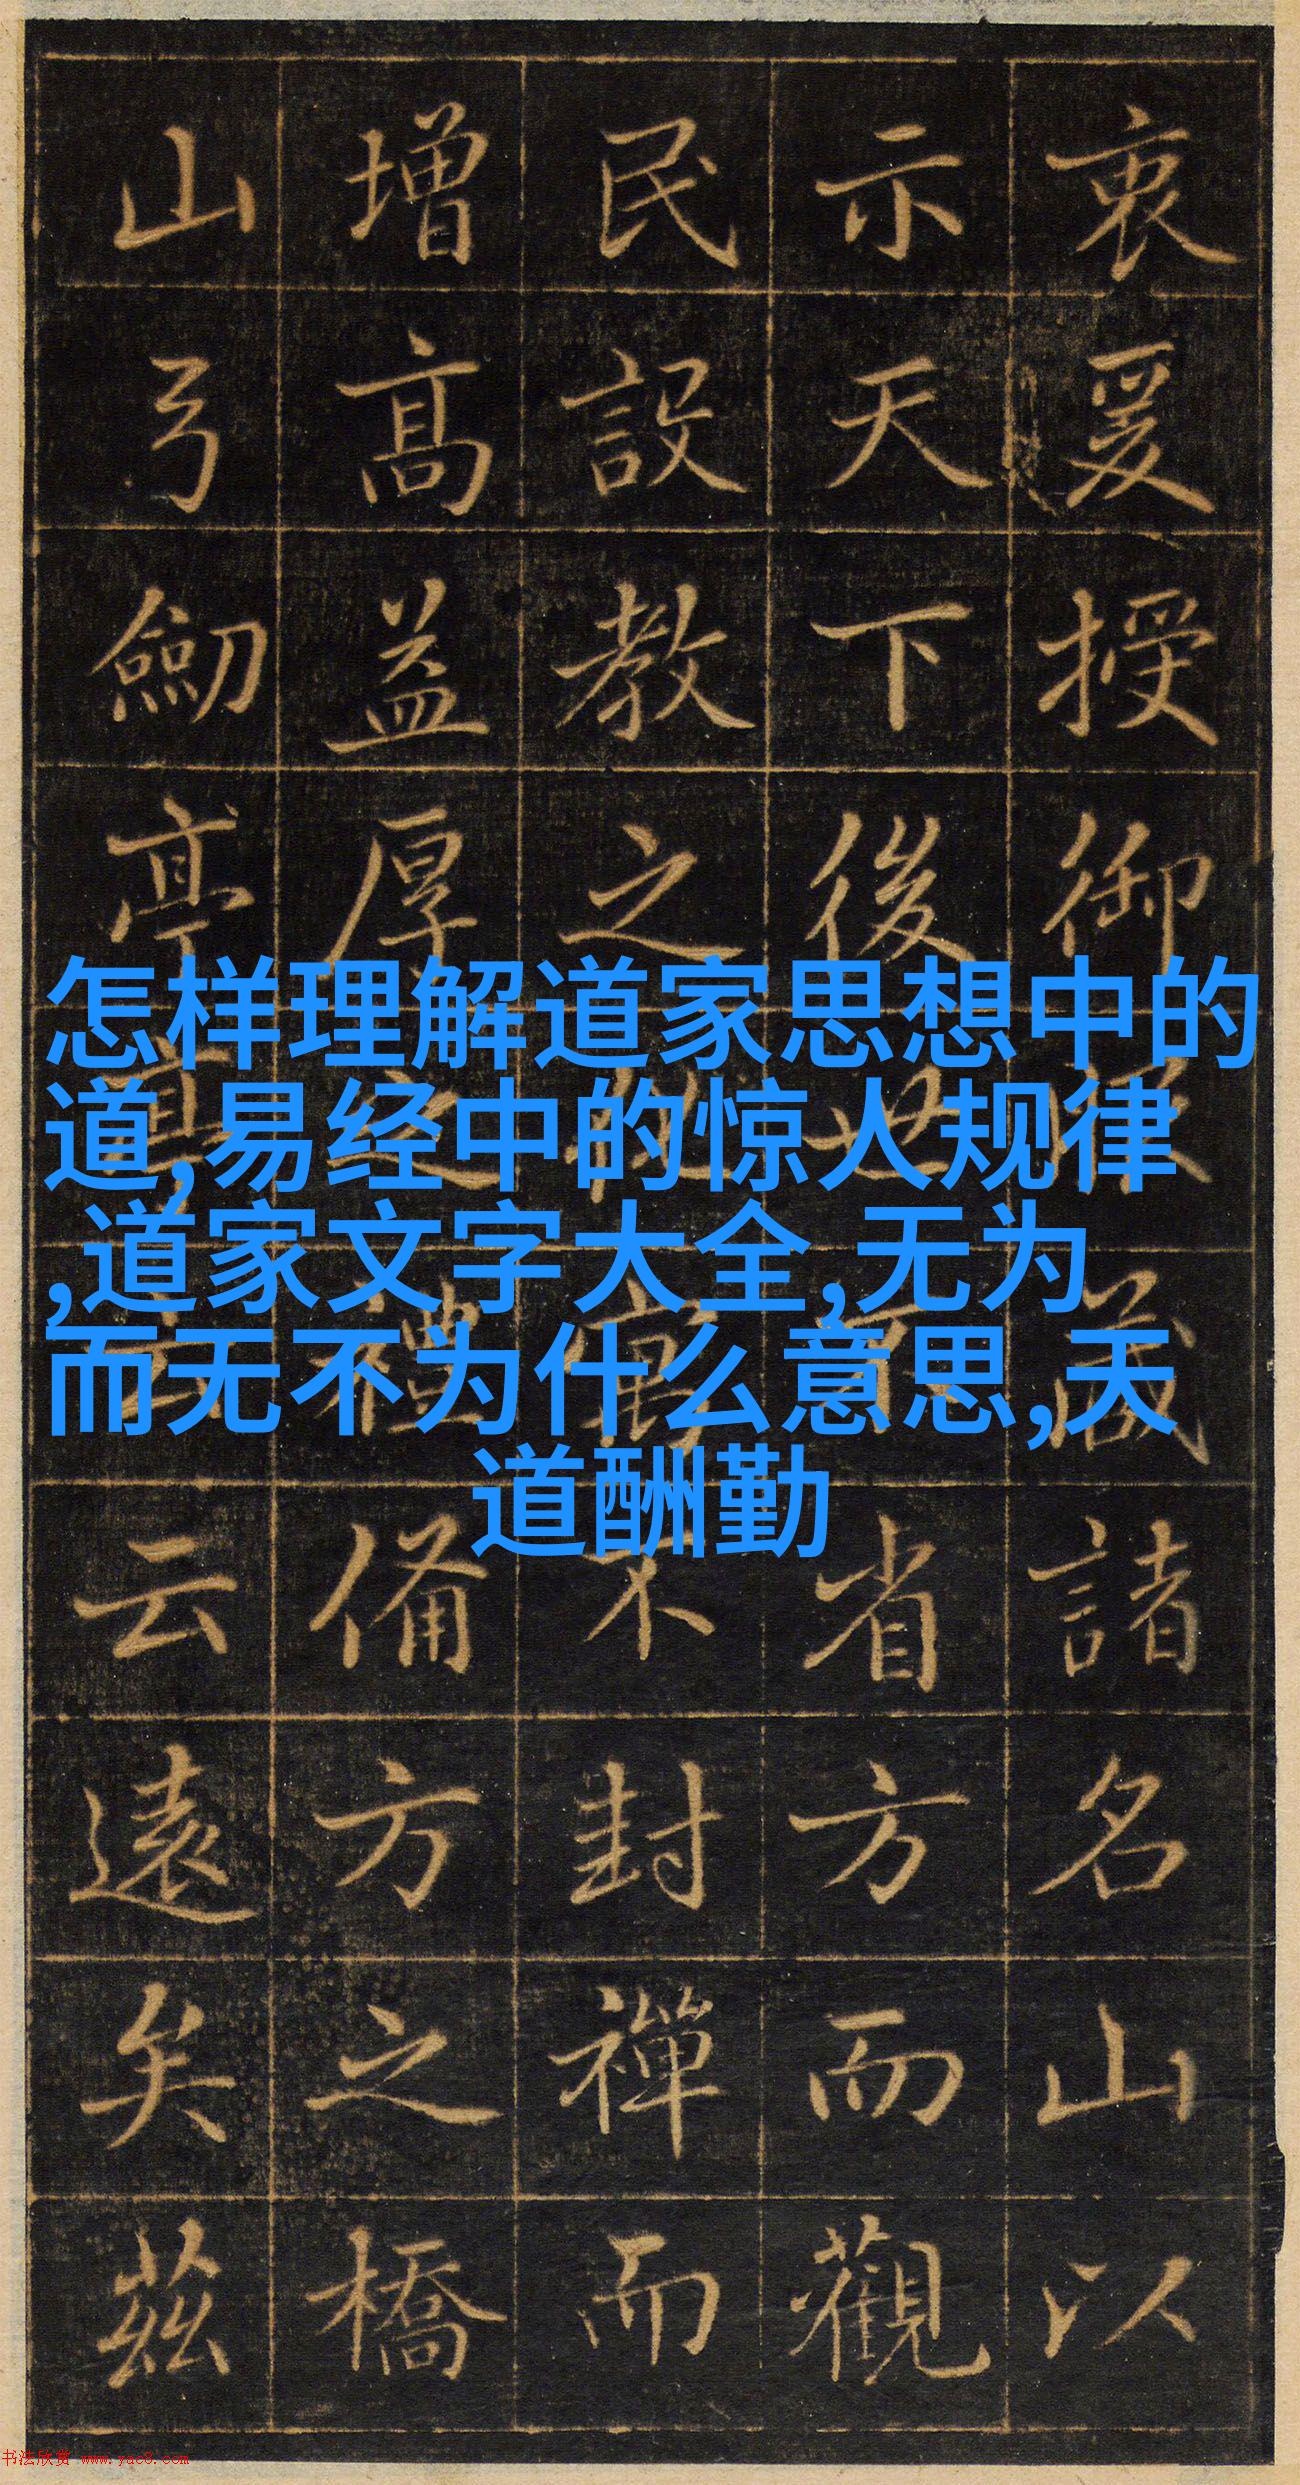 衷爰授御藏諸名山以
示天下後世省方而觀
民設教之不封禪而
增高益厚之禮備方之橋
山弓劒亭云遠矣茲
怎样理解道家思想中的
道,易经中的惊人规律
,道家文字大全,无为
而无不为什么意思,天
道酬勤
书法欣赏 www.yac8.com